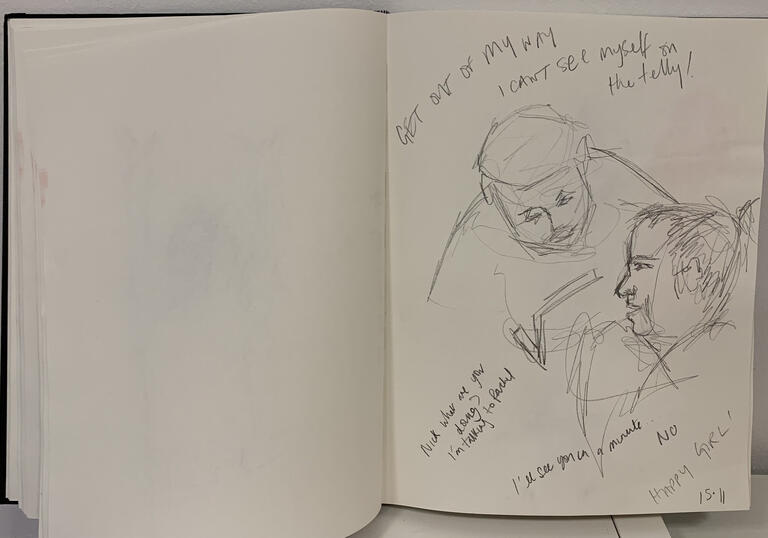 GET OUT OF MY WAY
I CANT SEE myself on
the telly!
Nick what are you
doing?
I'm talking to Rachel
I'll see you in a minute.
NO
HAPPY GIRL!
15.11